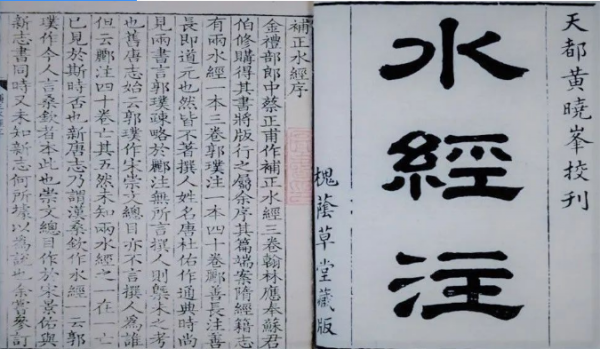 天都黃曉峯挍刊
水經注
槐蔭草堂藏版
補正水經序
金禮部郎中蔡正甫作補正水經三卷翰林應奉蘇君
伯修購得其書將版行之屬余序其篇端案隋經籍志
有兩水經一本三卷郭璞注一本四十卷酈善長注善
長即道元也然皆不著撰人姓名唐杜佑作通典時尚
見兩書言郭璞疎略於酈注無所言撰人則槩未之考
也舊唐志始云郭璞作宋崇文總目亦不言撰人爲誰
但云酈注四十卷亡其五然未知兩水經之一在一亡
已見於斯時否也新唐志乃謂漢桑欽作水經一云郭
璞作今人言桑欽者本此也崇文總目作於宋景佑與
新志書同時又未知新志何所據以爲說也余嘗參訂